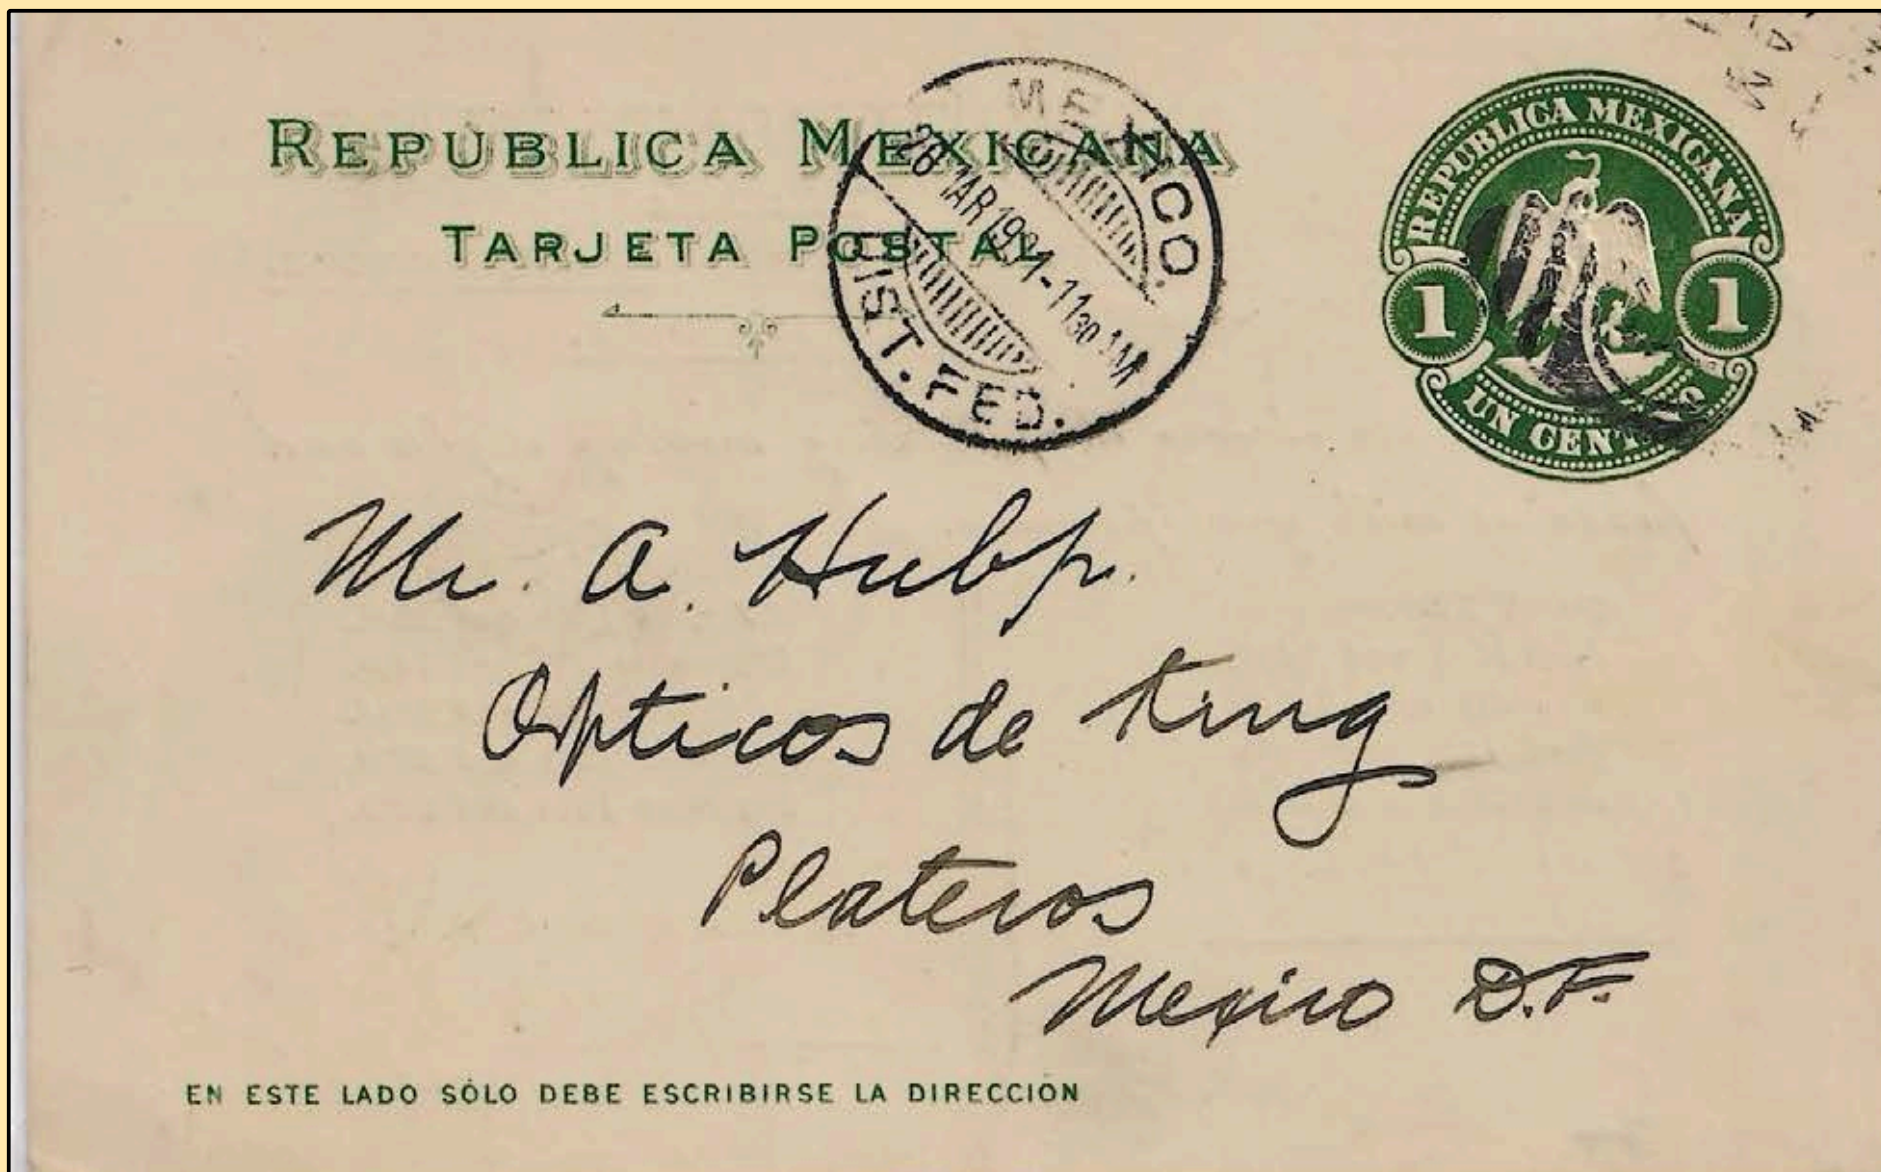 REPÚBLICA MEXICANA
TARJETA POSTAL
MEXICO.
DIST. FED.
REPUBLICA MEXICANA
1 1
UN
Mr. A. Hubp.
Opticos de King
Plateros
Mexico D.F.
EN ESTE LADO SÓLO DEBE ESCRIBIRSE LA DIRECCIÓN